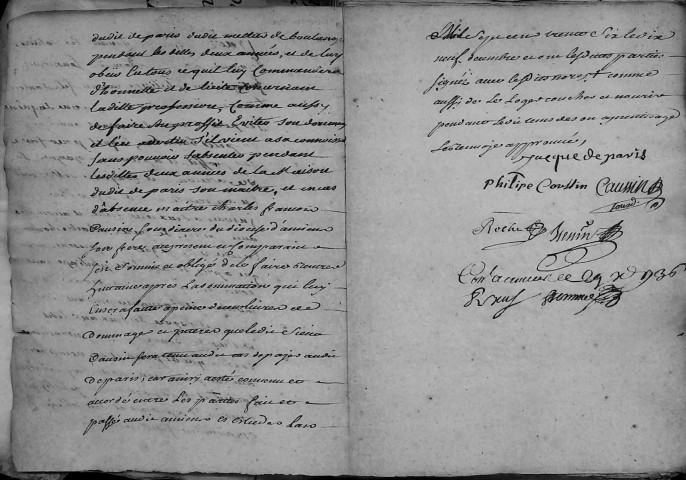 dudit de paris dudit mettes de boulang
pendant les dittes deux années, et de luy
obeir en tous ce quil luy Commandera
d'honnette et de licite concernant
laditte proffession, Comme aussy
de faire son proffit Eviter son dommage
et l'en avertir s'il vient a sa connoissce
sans pouvoir s'absenter pendant
lesdittes deux années de la Maison
dudit de paris son maitre, et en cas
d'absence maitre charles francois
Caussin, sousdiacre du diocese d'amiens
son frere au present et Comparant
s'est soumis et obligé de le faire
apres la sommation qui luy
en sera faite a peine de tous
dommages et interets que ledit Sieur
Caussin sera tenu audit cas de payer audit
De paris, car ainsi a esté convenu et
accordé entre Les parties fait et
passé audit amiens es etudes Lan
Mil Sept cent trente Six le dix
neuf decembre et ont lesdites parties
signé avec lesdits nores, comme
aussy de les Loger coucher et nourir
pendant le dit tems de son apprentissage
Jacque de paris
Philipe Coussin Caussin
Roche
Conlé a amiens le 29 Xb 1736